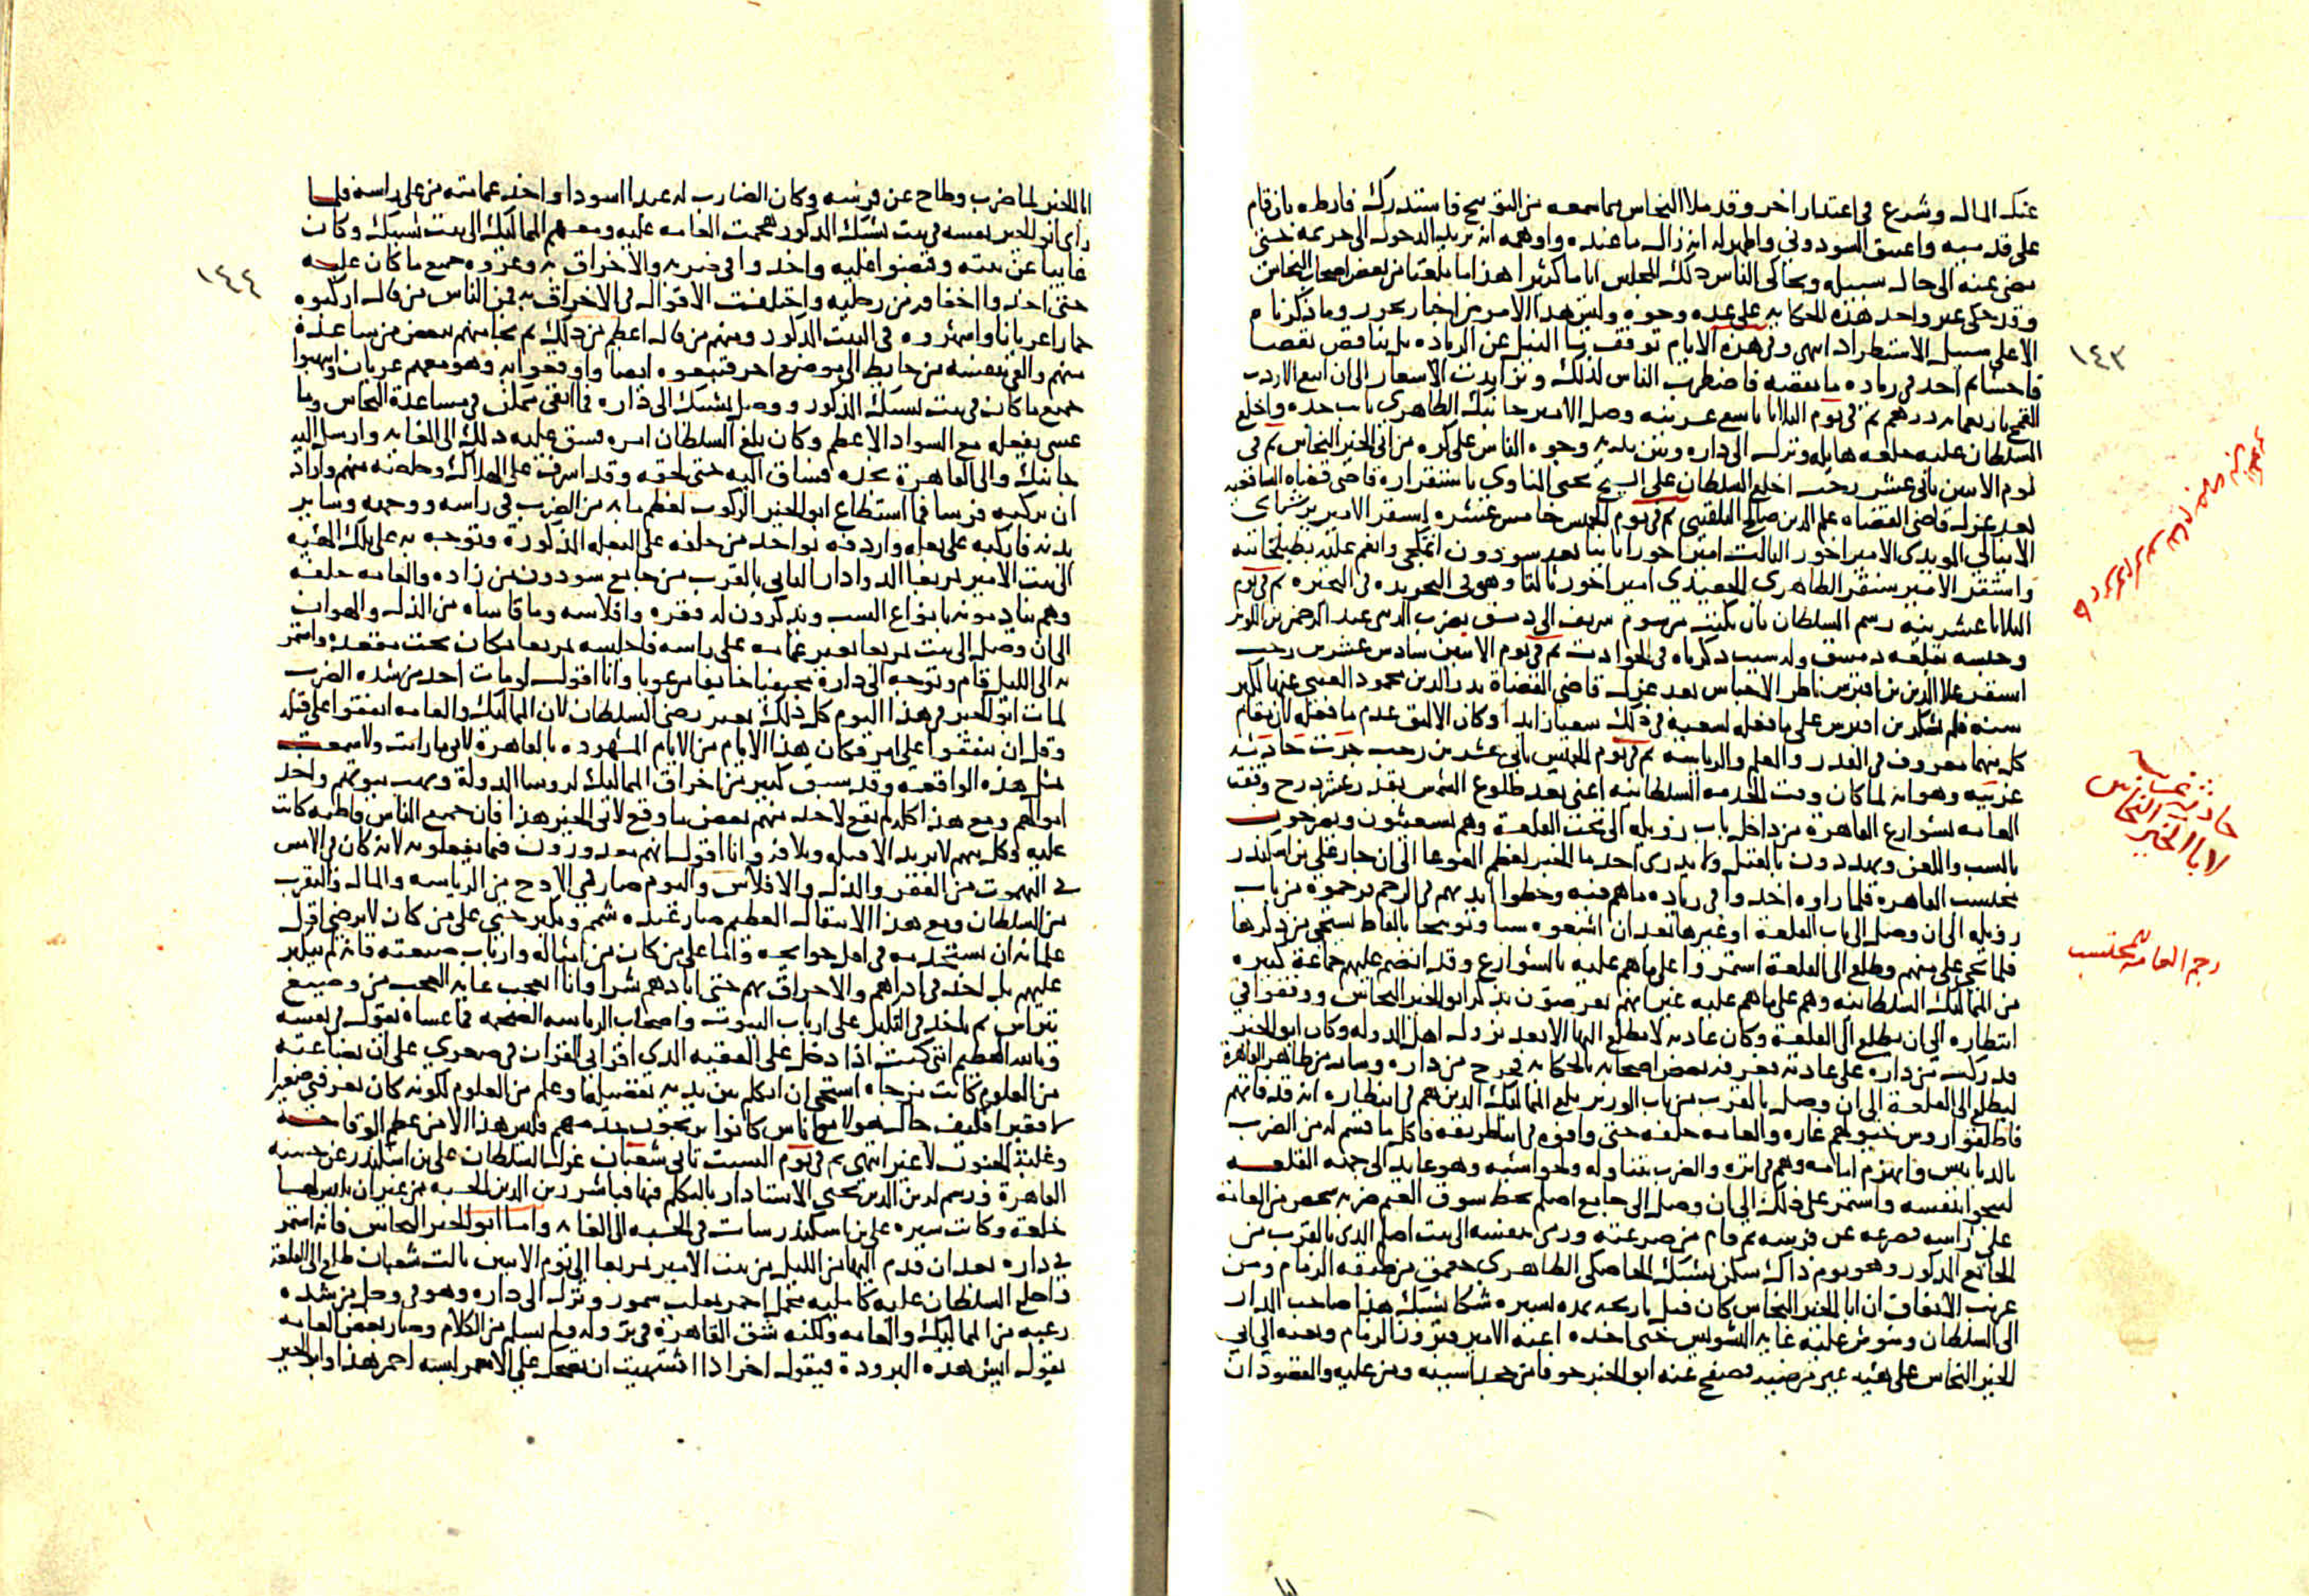 عنك المال وشرع في اعتذار اخر وقد ملا النحاس مما سمعه من التوبيخ فاستدرك فارطه بان قام
على قدميه واعتنق السودوني واظهر له انه زال ما عنده واوهمه انه يريد الدخول الى حريمه حتى
مضى عنه الى حال سبيله وتحاكى الناس ذلك المجلس اياما كثيرا هذا ما بلغنا من بعض اصحاب النحاس
وقد حكى غير واحد هذه الحكاية على عده وجوه وليس هذا الامر من اخبار تحرر وما ذكرناه
الا على سبيل الاستطراد انتهى وفي هذه الايام توقف النيل عن الزياده بل تناقص نقصا
فاحشا ثم اخذ في زياده ما نقصه فاضطرب الناس لذلك وتزايدت الاسعار الى ان ابيع الاردب
القمح باربعمايه درهم ثم في يوم الثلاثا تاسع عشرينه وصل الامير جانبك الظاهري نايب جده واخلع
السلطان عليه خلعه هايله ونزل الى داره وبين يديه وجوه الناس على كره من ابي الخير النحاس ثم في
يوم الاثنين ثاني عشر رجب اخلع السلطان على الشيخ يحيى المناوي باستقراره قاضي قضاه الشافعيه
بعد عزل قاضي القضاه علم الدين صالح البلقيني ثم في يوم الخميس خامس عشره استقر الامير برشباي
الاينالي المويدي الامير اخور الثالث امير اخور ثانيا بعد سودون اتمكجي وانعم عليه بطبلخانته
واستقر الامير سنقر الظاهري الجعيدي امير اخور ثالثا وهو في التجريده في البحيره ثم في يوم
الثلاثا عشرينه رسم السلطان بان يكتب مرسوم شريف الى دمشق بضرب الزيني عبد الرحمن بن الكويز
وحبسه بقلعه دمشق وله سبب ذكرناه في الحوادث ثم في يوم الاثنين سادس عشرين رجب
استقر علا الدين بن اقبرس ناظر الاحباس بعد عزل قاضي القضاة بدر الدين محمود العيني عنها لكبر
سنه فلم يشكر بن اقبرس على ما فعله لسعيه في ذلك سعيا زايدا وكان الاليق عدم ما فعله لان مقام
كل منهما معروف في القدر والعلم والرياسه ثم في يوم الخميس جرت حادثه
غريبه وهو انه لما كان وقت الخدمه السلطانيه اعني بعد طلوع الشمس بقدر عشر درج وقفت
العامه بشوارع القاهرة من داخل باب زويله الى تحت القلعة وهم يستغيثون ويصرخون
بالسب واللعن ويهددون بالقتل ولا يدري احد ما الخبر لعظم الغوغا الى ان جاز علي بن اسكندر
محتسب القاهره فلما راوه اخذوا في زياده ما هم فيه وحطوا ايديهم في الرجم فرجموه من باب
زويله الى ان وصل الى باب القلعة او غيرها بعد ان اشبعوه سبا وتوبيخا بالفاظ يستحى من ذكرها
فلما نجي علي منهم وطلع الى القلعة استمروا على ما هم عليه بالشوارع وقد انضم عليهم جماعة كبيره
من المماليك السلطانيه وهم على ما هم عليه غير انهم يعرضون بذكر ابو الخير النحاس ووقفوا في
انتظاره الى ان يطلع الى القلعة وكان عادته لا يطلع اليها الا بعد نزول اهل الدوله وكان ابو الخير
قد ركب من داره على عادته فعرفه بعض اصحابه بالحكايه فخرج من داره وسار من ظاهر القاهرة
ليطلع الى القلعة الى ان وصل بالقرب من باب الوزير بلغ المماليك الذين هم في انتظاره انه قد فاتهم
فاطلقوا روس خيولهم غاره والعامه خلفه حتى وافوه في الطريق فاكل ما قسم له من الضرب
بالدبابيس فانهزم امامه وهم في اثره والضرب يتناوله ولحواشيه وهو عايد الى جهه القلعه
لينجو بنفسه واستمر على ذلك الى ان وصل الى جامع اصلم بخط سوق الغنم ضربه شخص من العامه
على راسه فصرعه عن فرسه ثم قام من صرعته ورمى بنفسه الى بيت اصلم الذي بالقرب من
الجامع المذكور وهو يوم ذاك سكن يشبك الخاصكي الظاهري جقمق من طبقه الزمام ومن
غريب الاتفاق ان ابا الخير النحاس كان قبل تاريخه بمده يسيره شكا يشبك هذا صاحب الدار
الى السلطان وشوش عليه غايه التشويش حتى اخذه اعنه الامير فيروز الزمام وبعثه الى ابي
الخير النحاس على هيه غير مرضيه فصفح عنه ابو الخير خوفا من خجداشيته ومن عليه والمقصود ان
١٤٣
حادثة غريبة
لابا الخير النحاس
رجم العامه للمحتسب
ابا الخير لما ضرب وطاح عن فرسه وكان الضارب له عبدا اسودا واخذ عمامته من على راسه فلما
راى ابو الخير نفسه في بيت يشبك المذكور هجمت العامه عليه ومعهم المماليك الى بيت يشبك وكان
غايبا عن بيته وقبضوا عليه واخذوا في ضربه والاخراق به وعروه جميع ما كان عليه
حتى اخذوا اخفافه من رجليه واختلفت الاقوال في الاخراق به فمن الناس من قال اركبوه
حمارا عريانا واشهروه في البيت المذكور ومنهم من قال اعظم من ذلك ثم نجا منهم ببعض من ساعده
منهم والقى بنفسه من حايط الى موضع اخر فتبعوه ايضا واوقعوا به وهو معهم عريان وانتهبوا
جميع ما كان في بيت يشبك المذكور ووصل يشبك الى داره فما ابقى ممكن في مساعدة النحاس وما
عسى يفعله مع السواد الاعظم وكان بلغ السلطان امره فشق عليه ذلك الى الغايه وارسل اليه
جانبك والى القاهرة نجده فساق اليه حتى لحقه وقد اشرف على الهلاك وخلصه منهم واراد
ان يركبه فرسا فما استطاع ابو الخير الركوب لعظم ما به من الضرب في راسه ووجهه وساير
بدنه فاركبه على بغله واردفه بواحد من خلفه على البغله المذكورة وتوجه به على تلك الهييه
الى بيت الامير تمربغا الدوادار الثاني بالقرب من جامع سودون من زاده والعامه خلفه
وهم ينادونه بانواع السب ويذكرون له فقره وافلاسه وما قاساه من الذل والهوان
الى ان وصل الى بيت تمربغا بغير عمامه على راسه فاجلسه تمربغا بمكان تحت مقعده واستمر
به الى الليل قام وتوجه الى داره مختفيا خايفا مرعوبا وانا اقول لو مات احد من شده الضرب
لمات ابو الخير في هذا اليوم كل ذلك بغير رضى السلطان لان المماليك والعامه اتفقوا على قتله
وقل ان يتفقوا على امر فكان هذا الايام من الايام المشهوده بالقاهرة لاني ما رايت ولا سمعت
بمثل هذه الواقعه وقد سبق كثير من اخراق المماليك لروسا الدولة ونهب بيوتهم واخذ
اموالهم ومع هذا كله لم يقع لاحد منهم بعض ما وقع لابي الخير هذا فان جميع الناس قاطبه كانت
عليه وكل منهم لا يريد الا قتله وتلافه وانا اقول انهم معذورون فيما يفعلونه لانه كان في الامس
في البهموت من الفقر والذل والافلاس واليوم صار في الاوج من الرياسه والمال والتقرب
من السلطان ومع هذا الانتقال العظيم صار عنده شمم وتكبر حتى على من كان لا يرضى اقل
غلمانه ان يستخدمه في اقل حوايجه واما على من كان من امثاله وارباب صنعته فانه لم يتكبر
عليهم بل اخذ في اذاهم والاخراق بهم حتى ابادهم شرا وانا اتعجب غايه العجب من وضيع
يتراس ثم ياخذ في التكبر على ارباب البيوت واصحاب الرياسه الضخمه فما عساه يقول في نفسه
وبالله العظيم انني كنت اذا دخل على الفقيه الذي اقراني القران في صغري على ان بضاعته
من العلوم كانت مزجاه استحي ان اتكلم بين يديه بفضيله او علم من العلوم لكونه كان يعرفني صغيرا
لا فقيرا فكيف حال هولا مع اناس كانوا يرتجون خدمتهم فليس هذا الا من عظم الوقاحه
وغلبة الجنون لا غير انتهى ثم في يوم السبت ثاني شعبان عزل السلطان علي بن اسكندر عن حسبه
القاهرة ورسم لزين الدين يحيى الاستادار بالتكلم فيها فباشر زين الدين الحسبه من غير ان يلبس لها
خلعة وكانت سيره علي بن اسكندر سات في الحسبه الى الغايه واما ابو الخير النحاس فانه استمر
في داره بعد ان قدم اليها من الليل من بيت الامير تمربغا الى يوم الاثنين ثالث شعبان طلع الى القلعة
واخلع السلطان عليه كامليه مخمل احمر بقلب سمور ونزل الى داره وهو في وجل من شده
رعبه من المماليك والعامه ولكنه شق القاهرة في نزوله ولم يسلم من الكلام وصار بعض العامه
يقول ايش هذه البروده فيقول اخر اذا اشتهيت ان تضحك على الاسمر لبسه احمر هذا وابو الخير
١٤٤